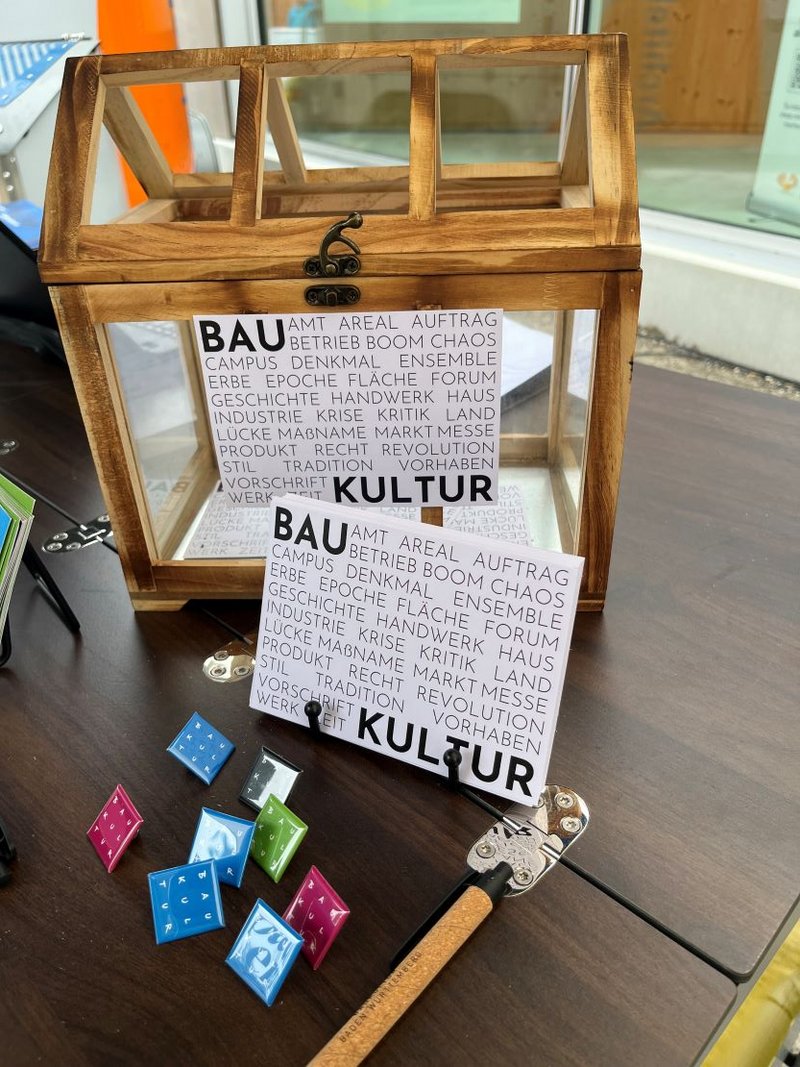 BAU AMT AREAL AUFTRAG
BETRIEB BOOM CHAOS
CAMPUS DENKMAL ENSEMBLE
ERBE EPOCHE FLÄCHE FORUM
GESCHICHTE HANDWERK HAUS
INDUSTRIE KRISE KRITIK LAND
LÜCKE MAßNAME MARKT MESSE
PRODUKT RECHT REVOLUTION
STIL TRADITION VORHABEN
VORSCHRIFT
WERK ZEIT KULTUR
BAU AMT AREAL AUFTRAG
BETRIEB BOOM CHAOS
CAMPUS DENKMAL ENSEMBLE
ERBE EPOCHE FLÄCHE FORUM
GESCHICHTE HANDWERK HAUS
INDUSTRIE KRISE KRITIK LAND
LÜCKE MAßNAME MARKT MESSE
PRODUKT RECHT REVOLUTION
STIL TRADITION VORHABEN
VORSCHRIFT
WERK ZEIT KULTUR
BAU
KUL
TUR
BAU
KUL
TUR
BAU
KUL
TUR
BAU
KUL
TUR
BAU
KUL
TUR
BADEN-WÜRTTEMBERG